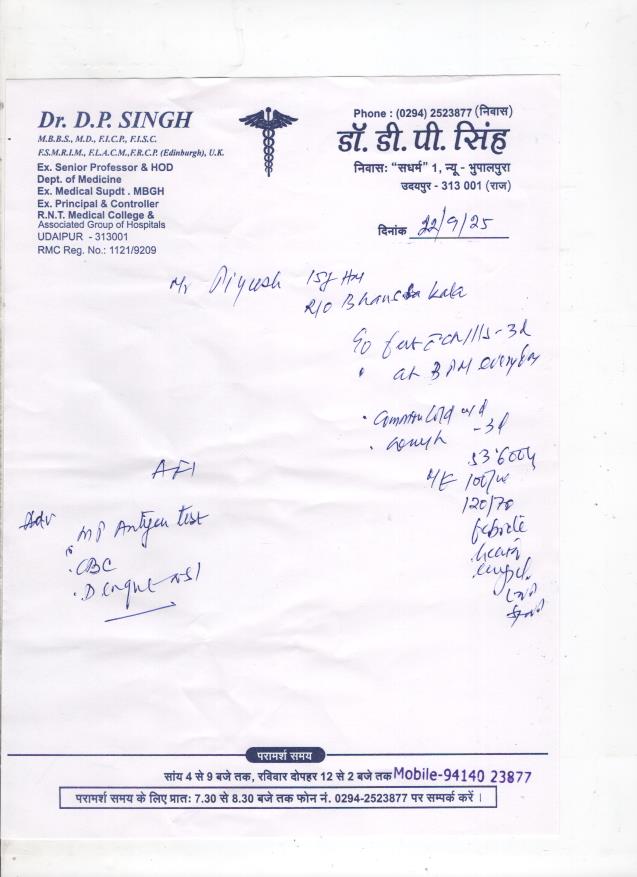 Dr. D.P. SINGH
M.B.B.S., M.D., F.I.C.P., F.I.S.C.
F.S.M.R.I.M., F.L.A.C.M., F.R.C.P. (Edinburgh), U.K.
Ex. Senior Professor & HOD
Dept. of Medicine
Ex. Medical Supdt . MBGH
Ex. Principal & Controller
R.N.T. Medical College &
Associated Group of Hospitals
UDAIPUR - 313001
RMC Reg. No.: 1121/9209
Phone : (0294) 2523877 (निवास)
डॉ. डी. पी. सिंह
निवास: "सधर्म" 1, न्यू - भुपालपुरा
उदयपुर - 313 001 (राज)
दिनांक 22/9/25
Mr Piyush 15y
R/O
- 3d
at 8 PM everyday
- 3d
100/m
120/70
febrile
AFI
Adv
MP Antigen test
. CBC
. Dengue NS1
परामर्श समय
सांय 4 से 9 बजे तक, रविवार दोपहर 12 से 2 बजे तक Mobile-94140 23877
परामर्श समय के लिए प्रातः 7.30 से 8.30 बजे तक फोन नं. 0294-2523877 पर सम्पर्क करें ।